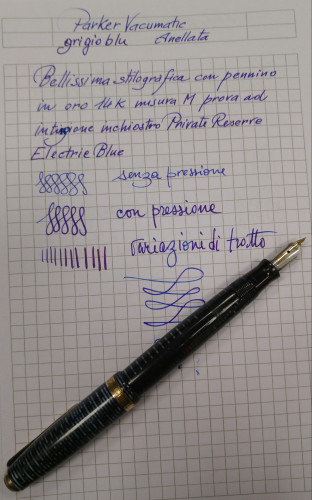 Parker Vacumatic
grigio blu Anellata
Bellissima stilografica con pennino
in oro 14K misura M prova ad
intizione inchiostro Private Reserve
Electric Blue
senza pressione
con pressione
variazioni di tratto